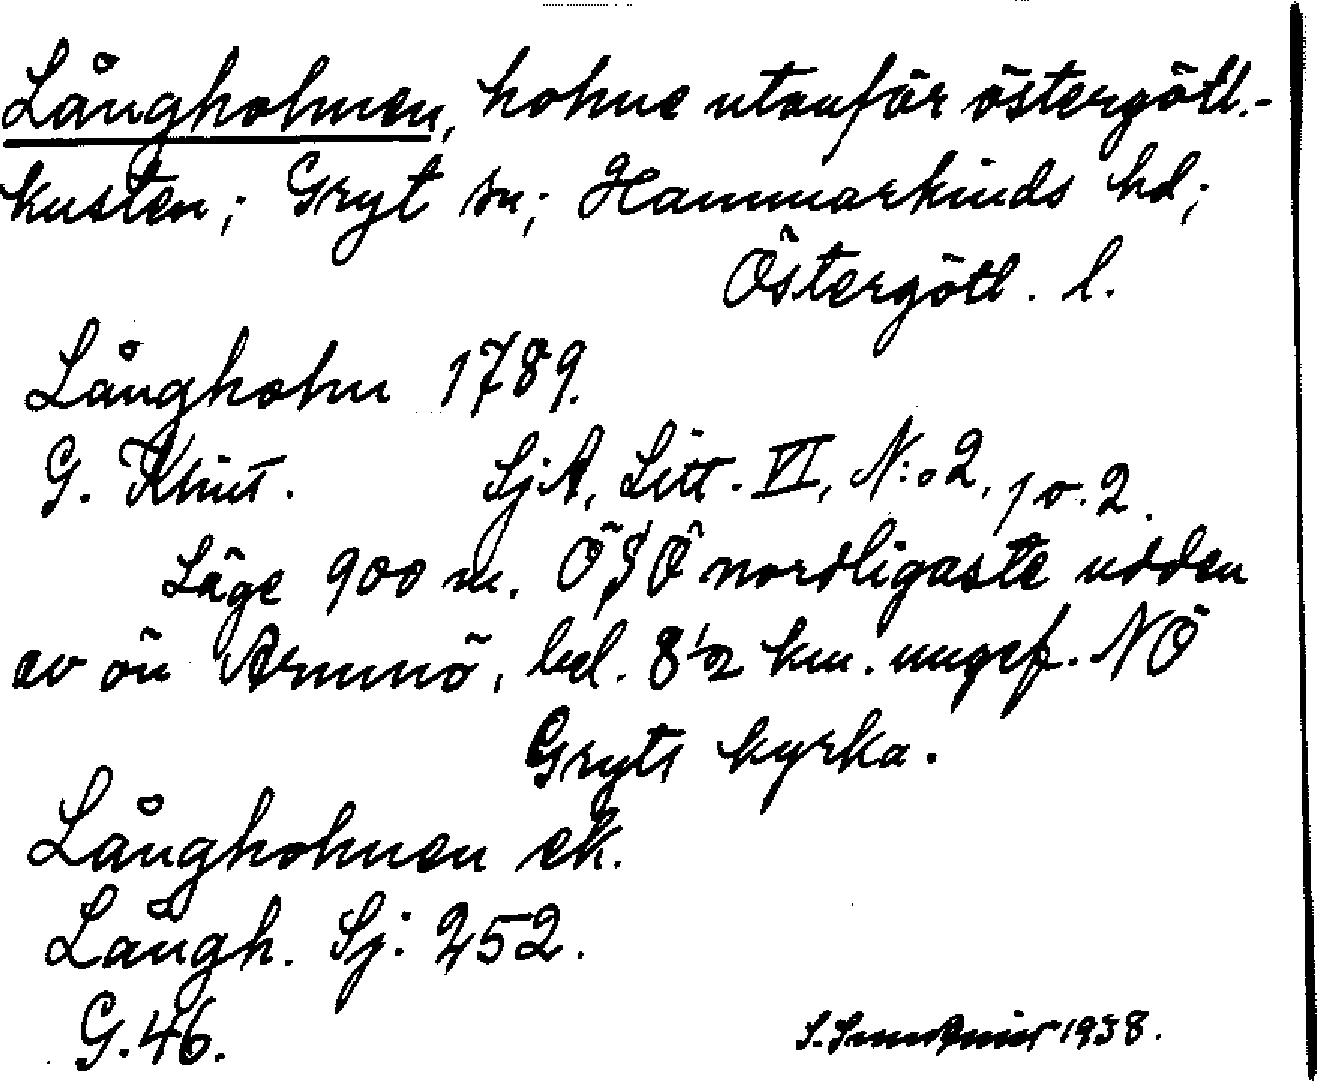 Långholmen, holme utanför östergötl.-
kusten; Gryt sn; Hammarkinds hd;
Östergötl. l.
Långholm 1789.
G. Klint. SjA, Litt. VI, N:o 2,
Läge 900 m. ÖSÖ nordligaste udden
av ön Armnö, bel. 8 1/2 km. ungef. NÖ
Gryts kyrka.
Långholmen ek.
Långh. Sj: 252.
G. 46.
1938.